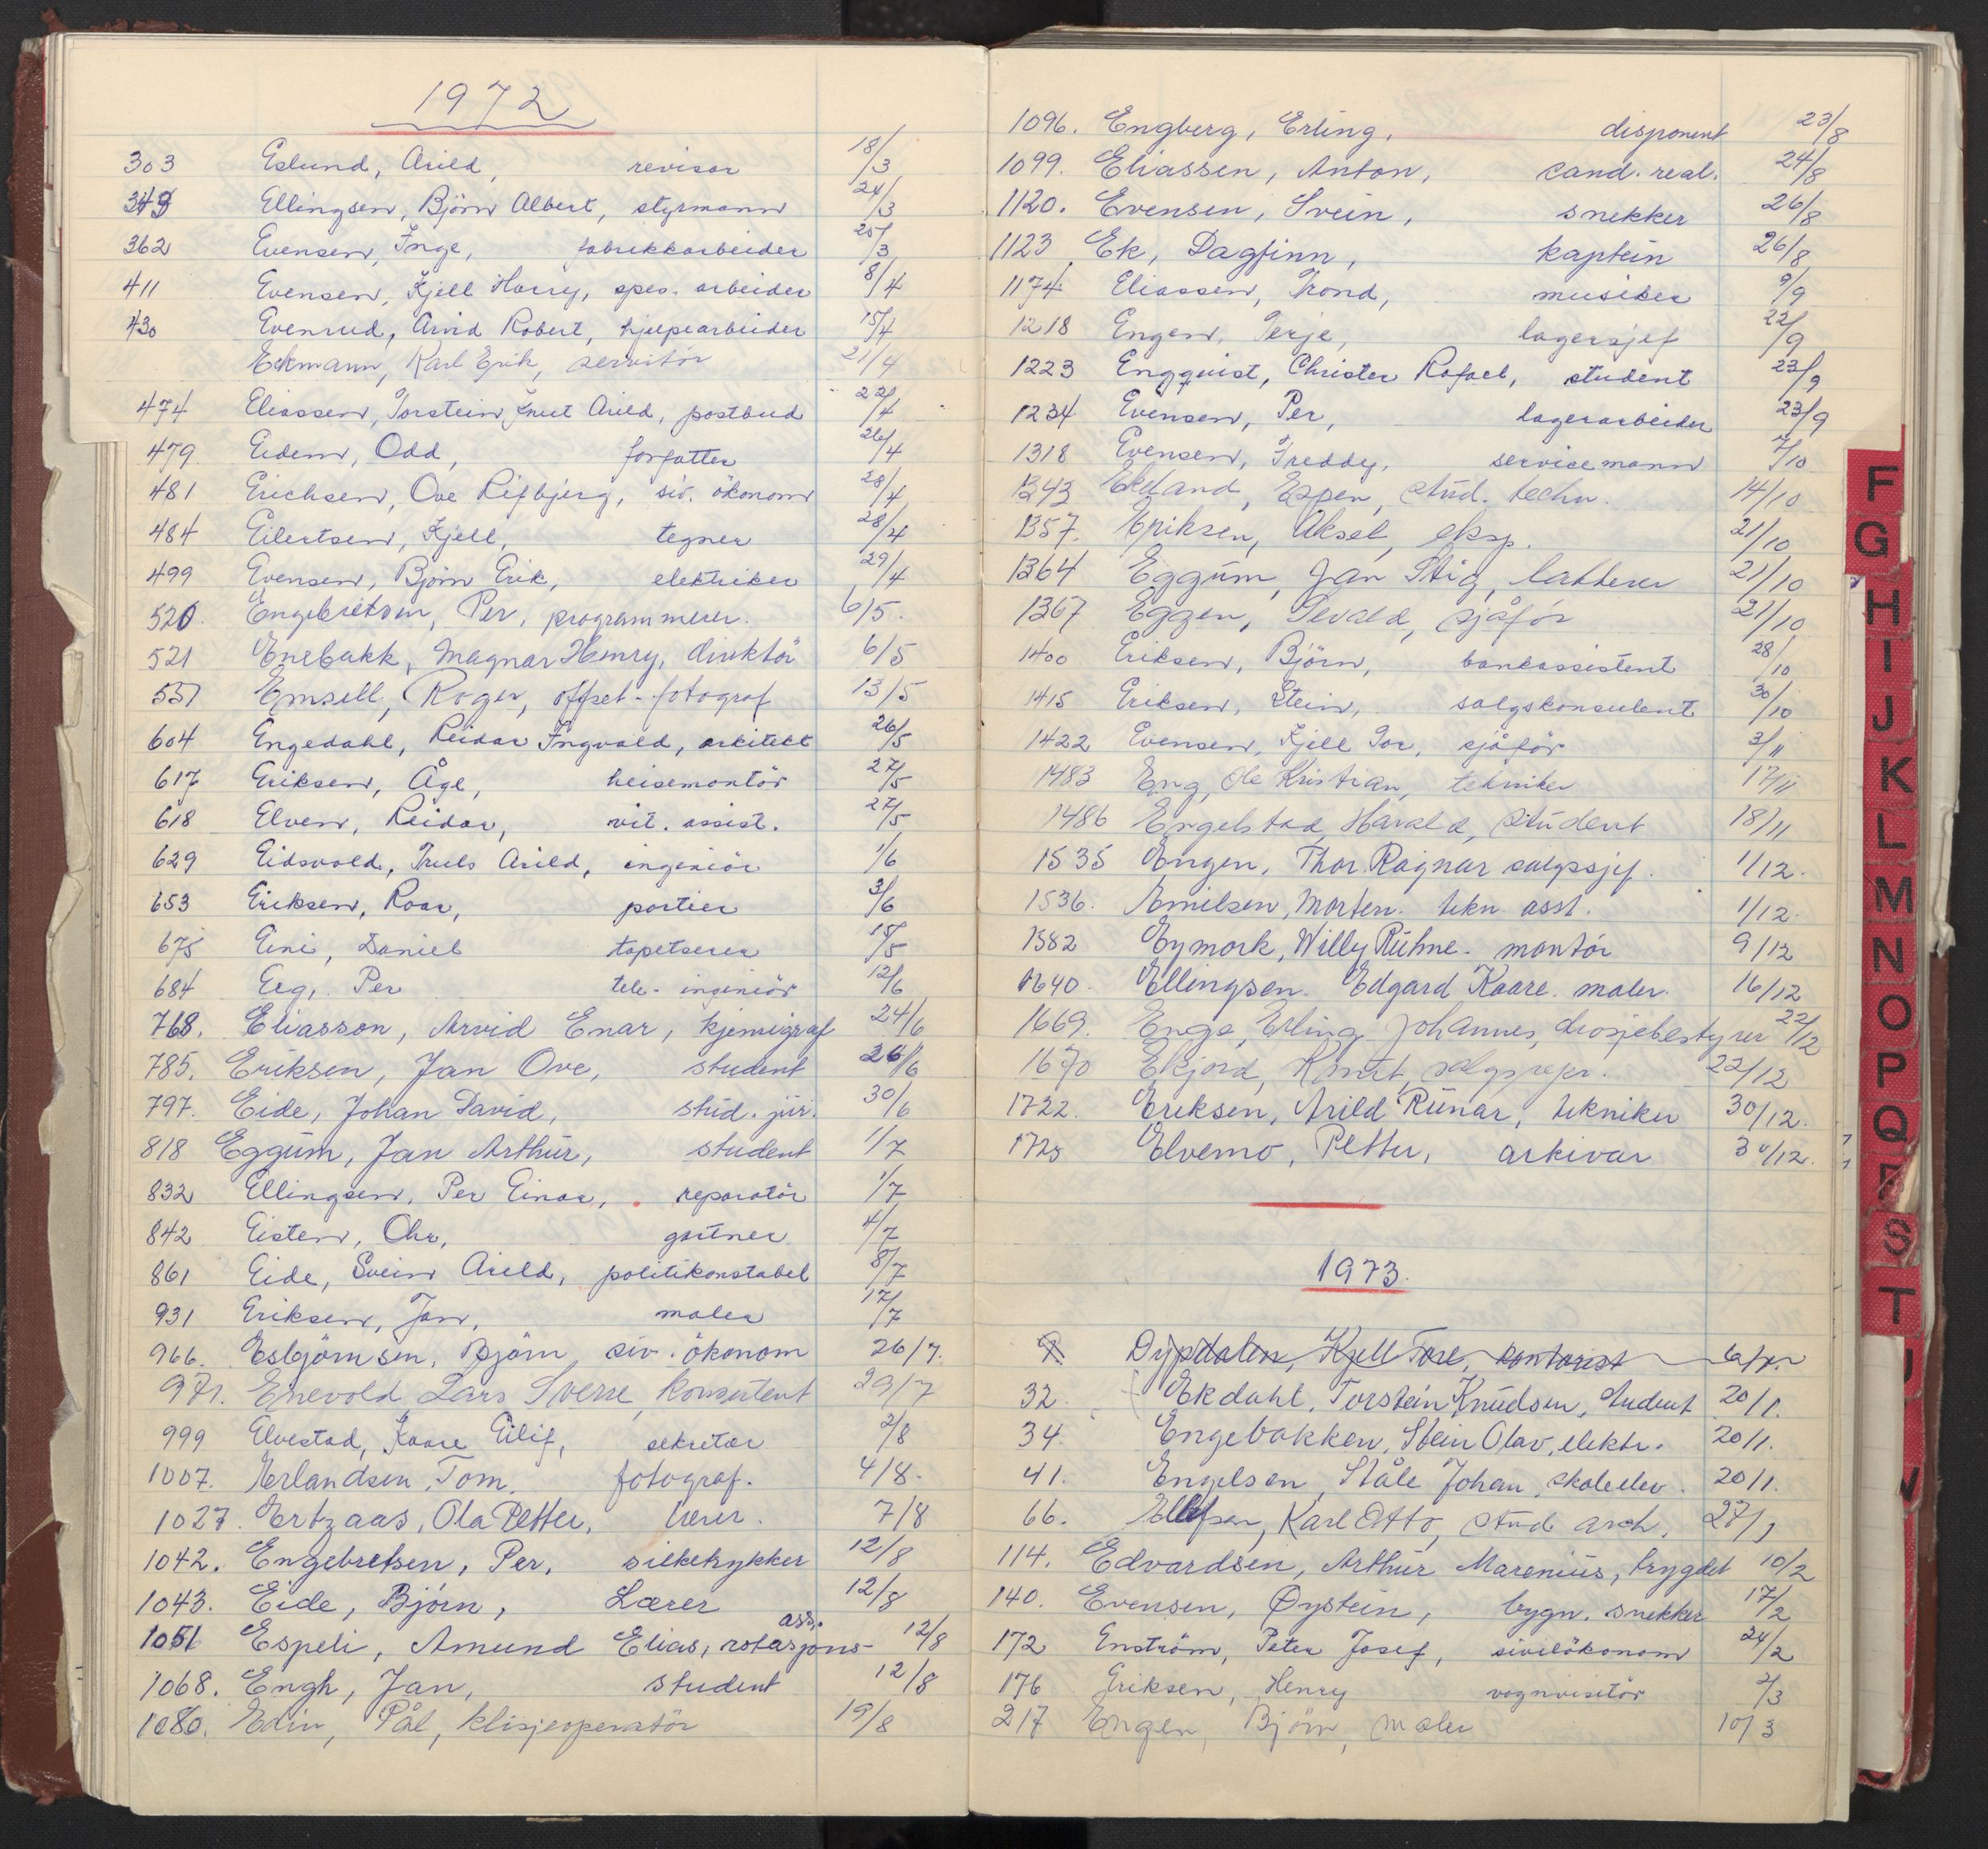 1972
303 Eslund, Arild, revisor 18/3
343 Ellingsen, Björn Albert, styrmann 24/3
362 Evensen, Inge, fabrikkarbeider 25/3
411 Evensen, Kjell Harry, spes. arbeider 8/4
430 Evenrud, Arvid Robert, hjelpearbeider 15/4
Eckmann, Karl Erik, servitör 21/4
474 Eliassen, Torstein Knut Arild, postbud 22/4
479 Eidem, Odd, forfatter 26/4
481 Erichsen, Ove Rifbjerg, siv. ökonom 28/4
484 Eilertsen, Kjell, tegner 28/4
499 Evensen, Björn Erik, elektriker 29/4
520. Engebretsen, Per, programmerer. 6/5.
521 Enebakk, Magnar Henry, direktör 6/5
551 Emsell, Roger, offset-fotograf 13/5
604 Engedahl, Reidar Ingvald, arkitekt 26/5
617 Eriksen, Åge, heisemontör 27/5
618 Elven, Reidar, vit. assist. 27/5
629 Eidsvold, Truls Arild, ingeniör 1/6
653 Eriksen, Roar, portier 3/6
675 Eini, Daniel tapetserer /5
684 Eeg, Per tele-ingeniör 12/6
768. Eliasson, Arvid Enar, kjemigraf 24/6
785. Eriksen, Jan Ove, student 26/6
797. Eide, Johan David, stud. jur. 30/6
818 Eggum, Jan Arthur, student 1/7
832 Ellingsen, Per Einar, reparatör 1/7
842 Eisten, Chr, gartner 4/7
861 Eide, Svein Arild, politikonstabel 8/7
931 Eriksen, Jan, maler 17/7
966. Esbjörnsen, Björn siv. ökonom 26/7.
971. Enevold Lars Sverre, konsulent 29/7
999 Elvestad, Kaare Eilif, sekretær 2/8
1007. Erlandsen, Tom. fotograf. 4/8.
1027. Ertzaas, Ola Petter, lærer. 7/8
1042. Engebretsen, Per, silketrykker 12/8
1043. Eide, Björn, Lærer 12/8
ass.
1051 Espeli, Amund Elias, rotasjons- 12/8
1068. Engh, Jan, student 12/8
1080. Edin, Pål, klisjeoperatör 19/8
1096. Engberg, Erling, disponent 23/8
1099. Eliassen, Anton, cand. real. 24/8
1120. Evensen, Svein, snekker 26/8
1123 Ek, Dagfinn, kaptein 26/8
1174 Eliassen, Trond, musiker 9/9
1218 Engen, Terje, lagersjef 22/9
1223 Engquist, Christer Rafael, student 23/9
1234 Evensen, Per, lagerarbeider 23/9
1318 Evensen, Freddy, servicemann 7/10
1343 Ekeland, Espen, stud. techn. 14/10
1357. Eriksen, Aksel, eksp. 21/10
1364 Eggum, Jan Stig, 21/10
1367 Eggen, Sevald, sjåför 21/10
1400 Eriksen, Björn, bankassistent 28/10
1415 Eriksen, Stein, salgskonsulent 30/10
1422 Evensen, Kjell Tor, sjåför 3/11
1483 Eng, Ole Kristian, tekniker 17/11
1486 Engelstad, Harald, student 18/11
1535 Engen, Thor Ragnar salgssjef. 1/12.
1536. Emilsen, Morten. tekn. asst. 1/12.
1582 Eymork, Willy Rühne. montör 9/12
1640. Ellingsen. Edgard Kaare. maler. 16/12
1669. Enge, Erling Johannes, drosjebestyrer 22/12
1670 Ekjord, Knut, salgsrepr. 22/12
1722. Eriksen, Arild Runar, tekniker 30/12.
1725 Elvemo, Petter, arkivar 30/12.
1973.
Dypdalen, Kjell Tore, kontorist
32. Ekdahl, Torstein Knudsen, student 20/1.
34. Engebakken, Stein Olav, elektr. 20/1.
41. Engelsen, Ståle Johan, skoleelev. 20/1.
66. Ellefsen, Karl Otto, stud arch. 27/1
114. Edvardsen, Arthur Marenius, trygdet 10/2
140. Evensen, Øystein, bygn. snekker 17/2
172 Enström, Peter Josef, siviløkonom 24/2
176 Eriksen, Henry vognvisitör 2/3
217 Engen, Björn, maler 10/3
F
G
H
I
J
K
L
M
N
O
P
Q
R
S
T
U
V